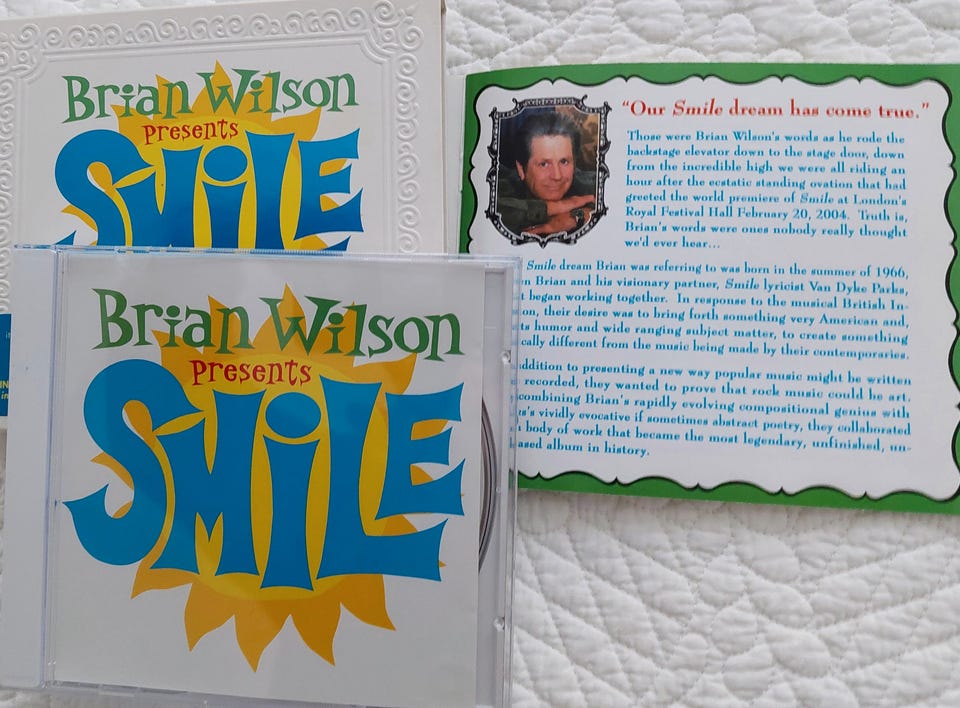 Brian Wilson
Presents
SMiLE
Brian Wilson
Presents
SMiLE
"Our Smile dream has come true."
Those were Brian Wilson's words as he rode the
backstage elevator down to the stage door, down
from the incredible high we were all riding an
hour after the ecstatic standing ovation that had
greeted the world premiere of Smile at London's
Royal Festival Hall February 20, 2004. Truth is,
Brian's words were ones nobody really thought
we'd ever hear...
Smile dream Brian was referring to was born in the summer of 1966,
Brian and his visionary partner, Smile lyricist Van Dyke Parks,
began working together. In response to the musical British In-
on, their desire was to bring forth something very American and,
ts humor and wide ranging subject matter, to create something
cally different from the music being made by their contemporaries.
addition to presenting a new way popular music might be written
recorded, they wanted to prove that rock music could be art.
combining Brian's rapidly evolving compositional genius with
's vividly evocative if sometimes abstract poetry, they collaborated
body of work that became the most legendary, unfinished, un-
ased album in history.